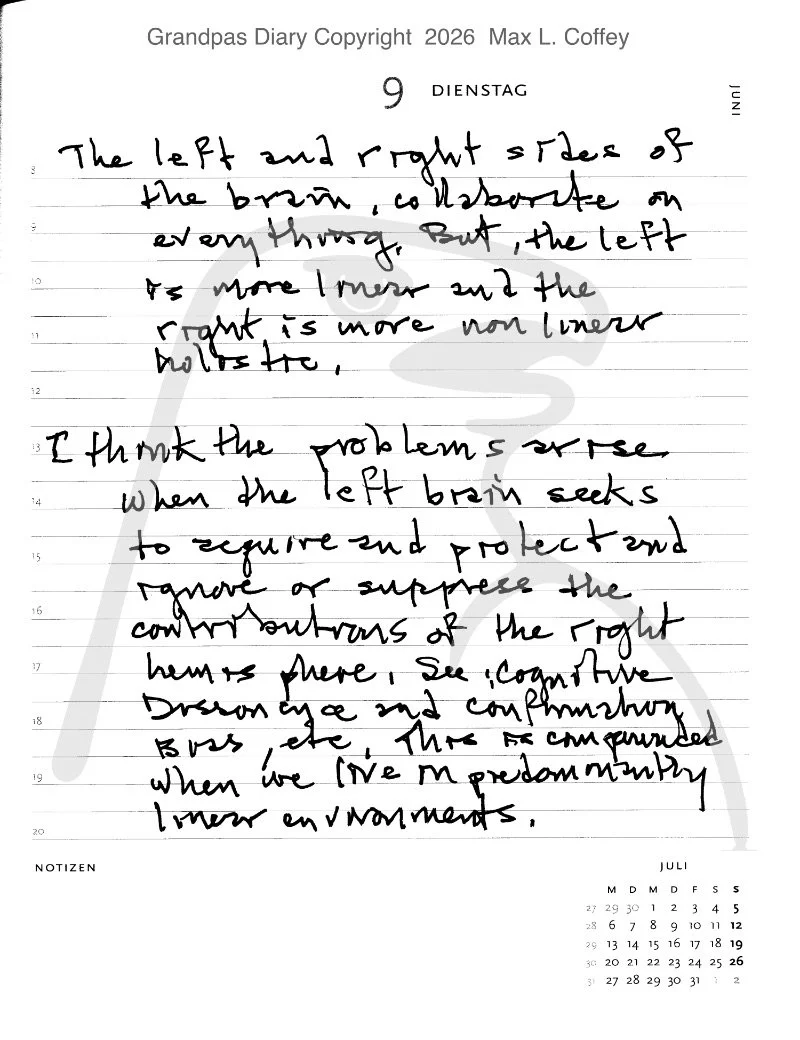 Grandpas Diary Copyright 2026 Max L. Coffey
9 DIENSTAG
JUNI
The left and right sides of
the brain, collaborate on
everything. But, the left
is more linear and the
right, is more non linear
holistic.
I think the problems arise
when the left brain seeks
to acquire and protect and
ignore or suppress the
contributions of the right
hemisphere. See, Cognitive
Dissonance and confirmation
Bias, etc, This is compounded
when we live in predominantly
linear environments.
8
9
10
11
12
13
14
15
16
17
18
19
20
NOTIZEN
JULI
M D M D F S S
27 29 30 1 2 3 4 5
28 6 7 8 9 10 11 12
29 13 14 15 16 17 18 19
30 20 21 22 23 24 25 26
31 27 28 29 30 31 1 2